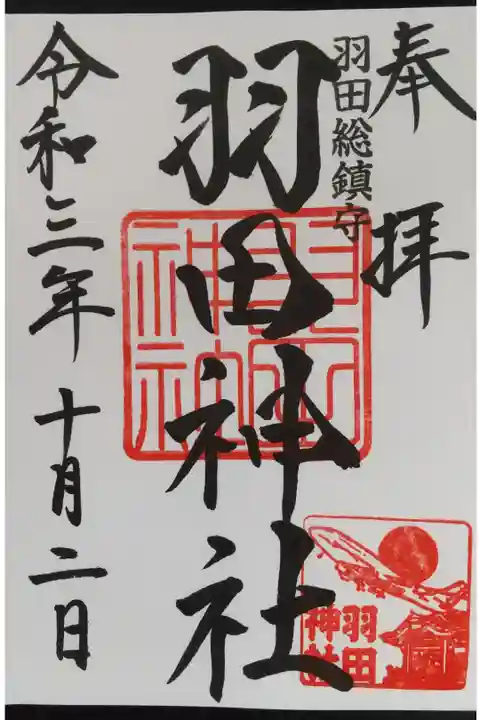 奉拝
羽田総鎮守
羽田神社
令和三年十月二日
羽田
神社